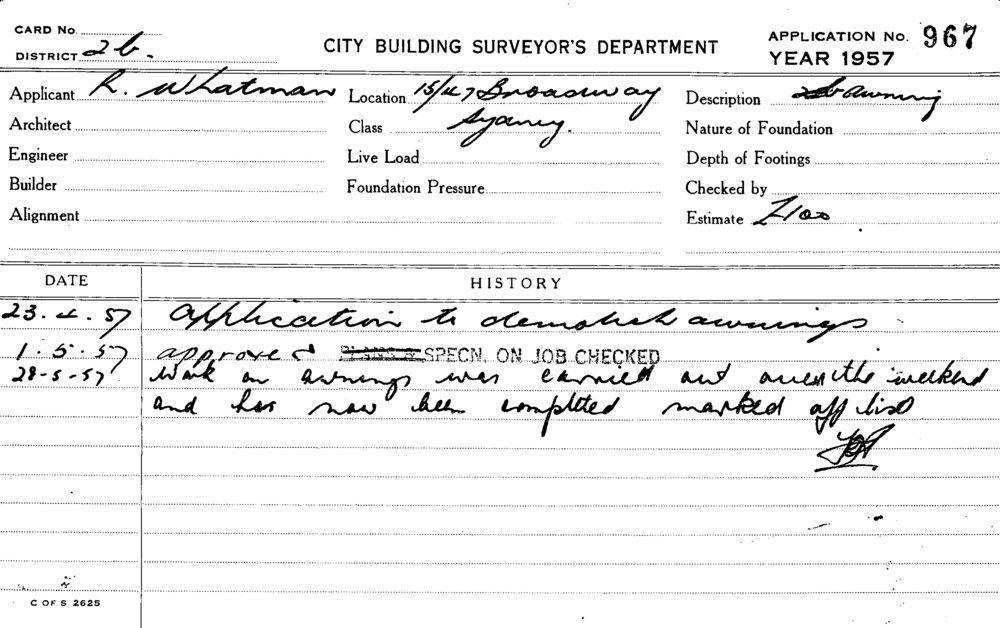 CARD No.
DISTRICT 2b.
CITY BUILDING SURVEYOR'S DEPARTMENT
APPLICATION No. 967
YEAR 1957
Applicant R. Whatman Location 15/47 Broadway Description awning
Architect Class Sydney. Nature of Foundation
Engineer Live Load Depth of Footings
Builder Foundation Pressure Checked by
Alignment Estimate £100
DATE HISTORY
23.4.57 application to demolish awnings
1.5.57 approved PLANS & SPECN. ON JOB CHECKED
28-5-57 Work on awnings was carried out over the weekend
and has now been completed marked off list
C OF S 2625